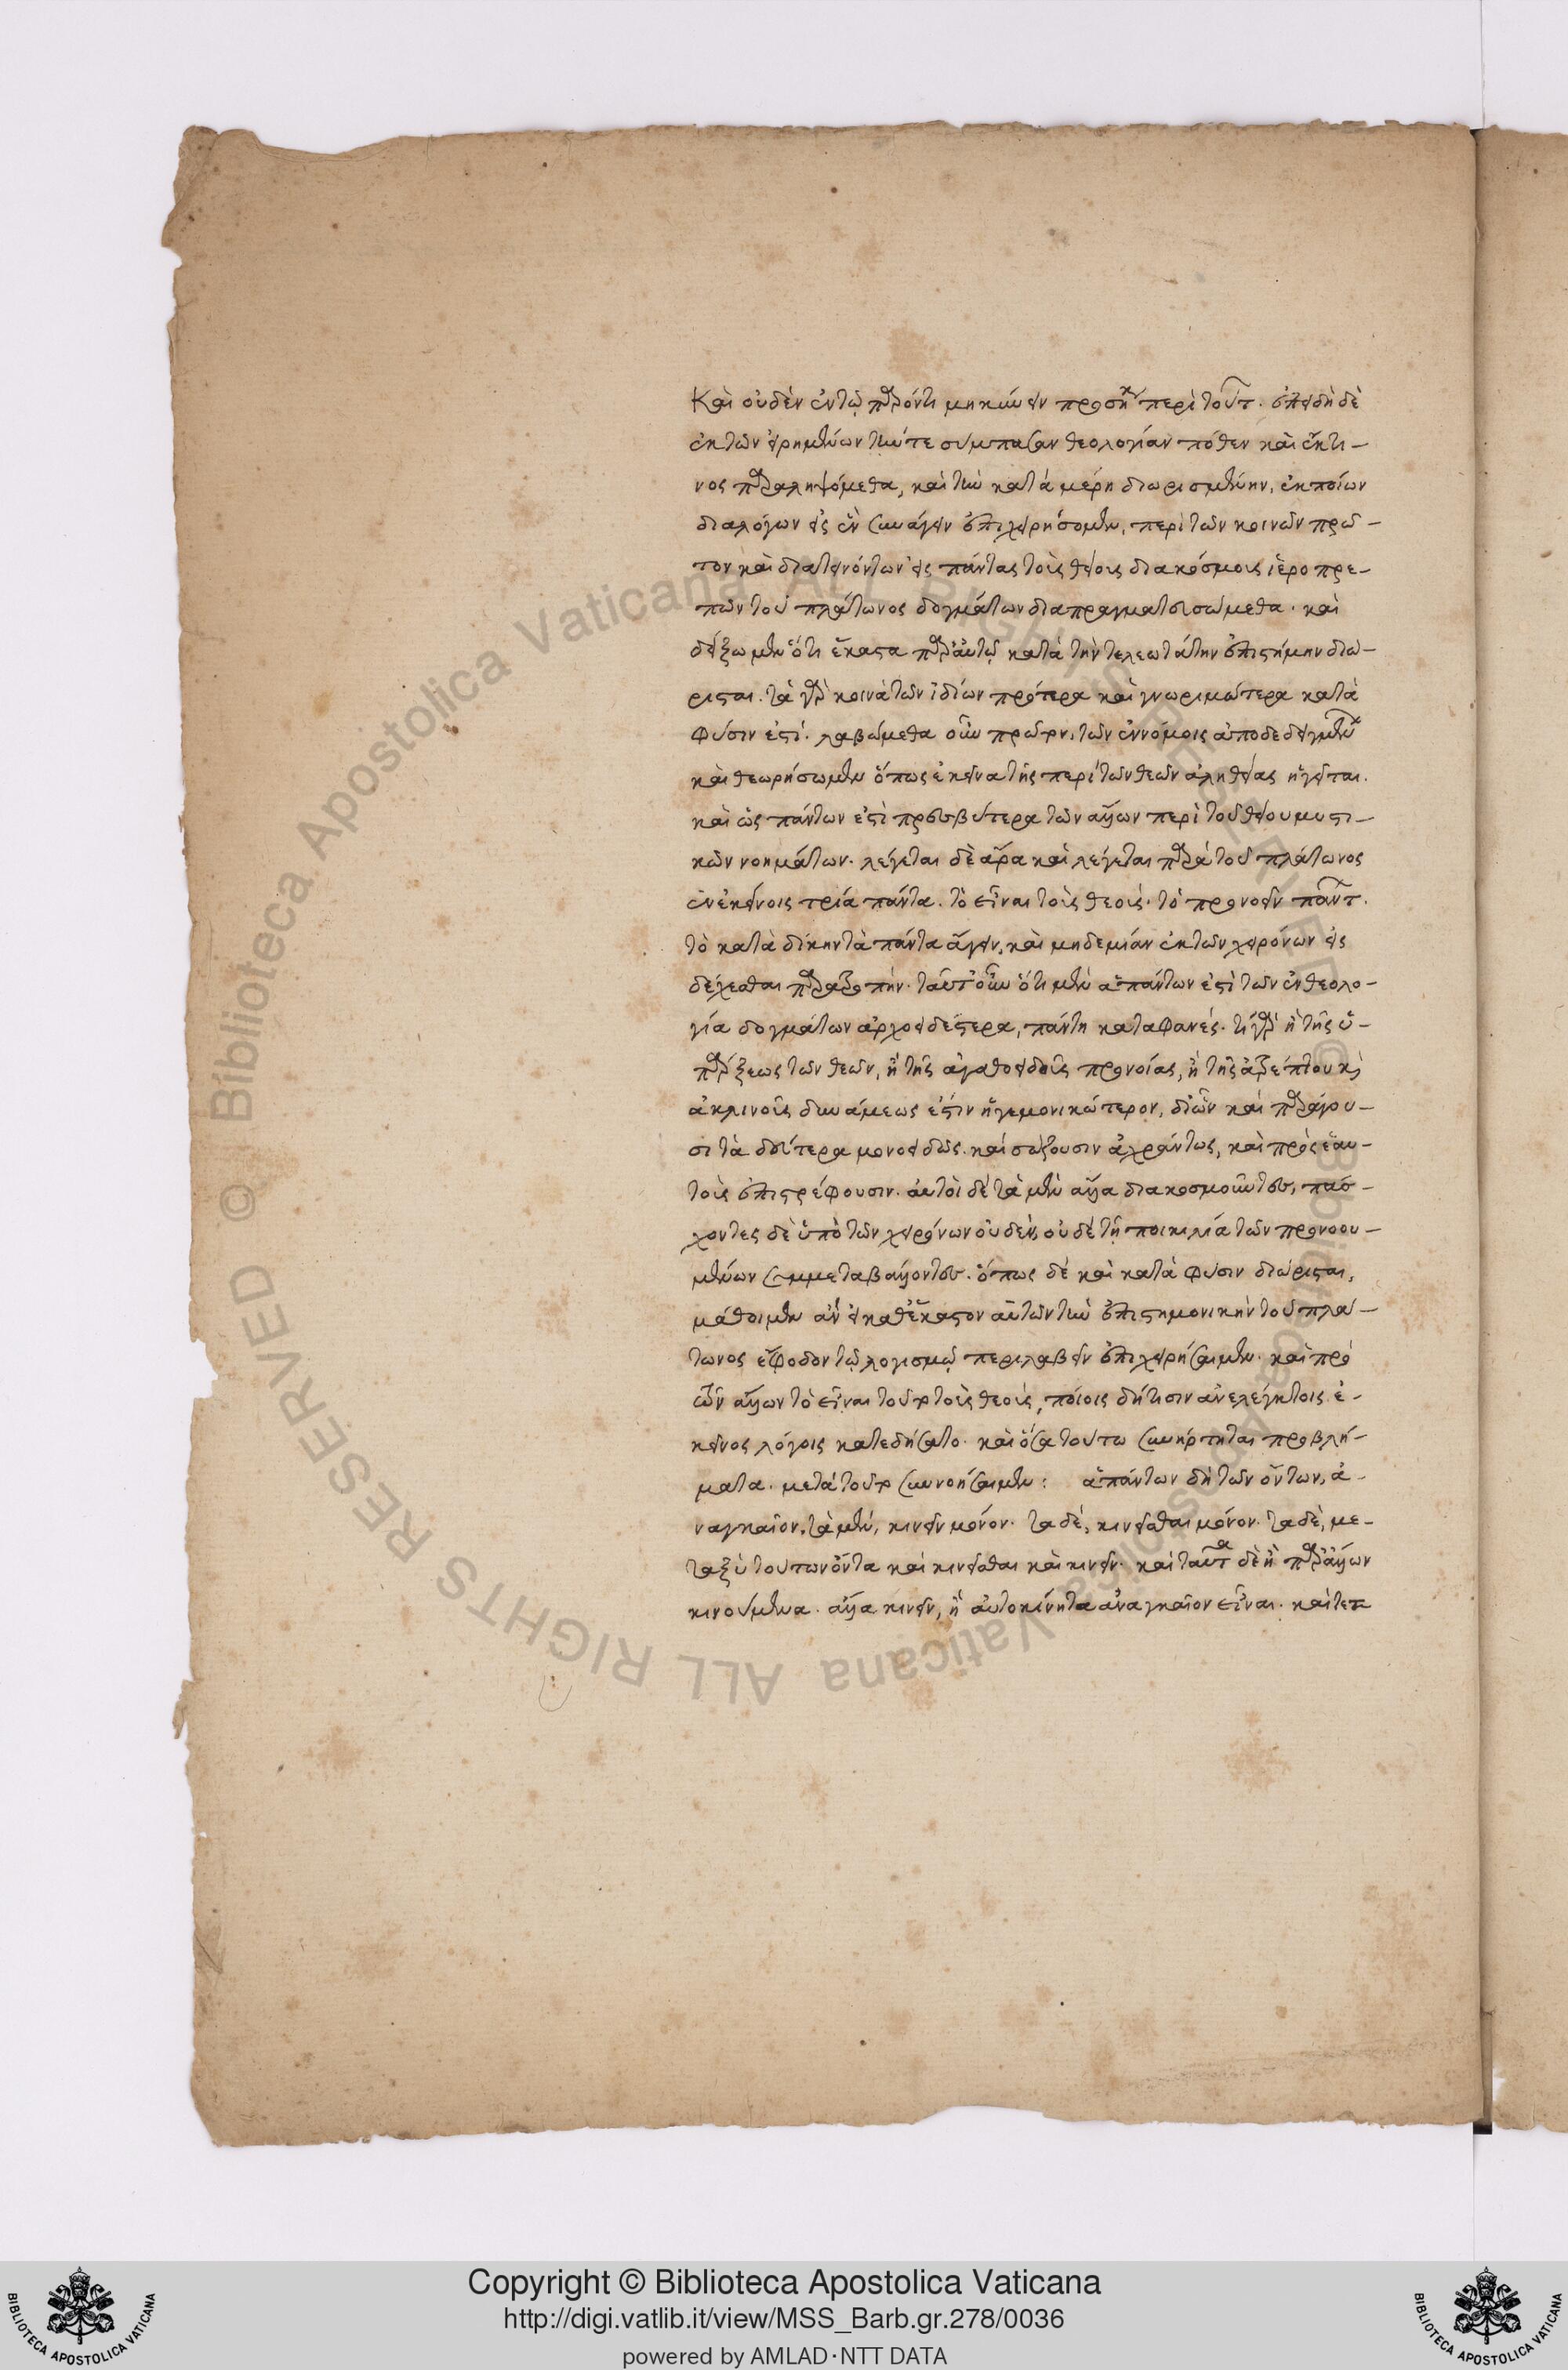 Καὶ οὐδὲν ἐν τῷ παρόντι μηκύνειν προσήκει περὶ τούτων. ἐπειδὴ δὲ
ἐκ τῶν εἰρημένων τήν τε σύμπασαν θεολογίαν πόθεν καὶ ἔκ τι-
νος παραληψόμεθα, καὶ τὴν κατὰ μέρη διωρισμένην, ἐκ ποίων
διαλόγων εἰς ἓν συνάγειν ἐπιχειρήσομεν, περὶ τῶν κοινῶν πρῶ-
τον καὶ διατεινόντων εἰς πάντας τοῖς θείοις διακόσμοις ἱεροπρε-
πῶν τοῦ πλάτωνος δογμάτων διαπραγματευσώμεθα. καὶ
δείξωμεν ὅτι ἕκαστα παρ' αὐτῷ κατὰ τὴν τελεωτάτην ἐπιστήμην διώ-
ρισται. τὰ γὰρ κοινὰ τῶν ἰδίων πρότερα καὶ γνωριμώτερα κατὰ
φύσιν ἐστί. λαβώμεθα οὖν πρῶτον, τῶν ἐν νόμοις ἀποδεδειγμένων
καὶ θεωρήσωμεν ὅπως ἐκεῖνα τῆς περὶ τῶν θεῶν ἀληθείας ἡγεῖται.
καὶ ὡς πάντων ἐστὶ πρεσβύτερα τῶν ἄλλων περὶ τοῦ θείου μυστι-
κῶν νοημάτων. λέγεται δὲ ἄρα καὶ λέγεται παρὰ τοῦ πλάτωνος
ἐν ἐκείνοις τρία πάντα. τὸ εἶναι τοὺς θεούς. τὸ προνοεῖν πάντων.
τὸ κατὰ δίκην τὰ πάντα ἄγειν, καὶ μηδεμίαν ἐκ τῶν χειρόνων εἰς
δέχεσθαι παρατροπήν. ταῦτ' οὖν ὅτι μὲν ἁπάντων ἐστὶ τῶν ἐν θεολο-
γία δογμάτων ἀρχοειδέστερα, πάντη καταφανές. τί γὰρ ἢ τῆς ὑ-
πάρξεως τῶν θεῶν, ἢ τῆς ἀγαθοειδοῦς προνοίας, ἢ τῆς ἀτρέπτου καὶ
ἀκλινοῦς δυνάμεως ἐστὶν ἡγεμονικώτερον, δι' ὧν καὶ παράγου-
σι τὰ δεύτερα μονοειδῶς. καὶ σώζουσιν ἀχράντως, καὶ πρὸς ἑαυ-
τοὺς ἐπιστρέφουσιν. αὐτοὶ δὲ τὰ μὲν ἄλλα διακοσμοῦντες, πάσ-
χοντες δὲ ὑπὸ τῶν χειρόνων οὐδὲν, οὐδὲ τῇ ποικιλία τῶν προνοου-
μένων συμμεταβάλλοντες. ὅπως δὲ καὶ κατὰ φύσιν διώρισται,
μάθοιμεν ἂν εἰ καθ' ἕκαστον αὐτῶν τὴν ἐπιστημονικὴν τοῦ πλά-
τωνος ἔφοδον τῷ λογισμῷ περιλαβεῖν ἐπιχειρήσαιμεν. καὶ πρό
τῶν ἄλλων τὸ εἶναι τούτο τοὺς θεούς, ποίοις δή τισιν ἀνελέγκτοις ἐ-
κεῖνος λόγοις κατεδήσατο. καὶ ὅσα τούτω συνήρτηται προβλή-
ματα. μετὰ τοῦτο συννοήσαιμεν: ἁπάντων δὴ τῶν ὄντων, ἀ-
ναγκαῖον, τὰ μὲν, κινεῖν μόνον. τὰ δέ, κινεῖσθαι μόνον. τὰ δὲ, με-
ταξὺ τούτων ὄντα καὶ κινεῖσθαι καὶ κινεῖν. καὶ ταῦτα δὲ ἢ παρ' ἄλλων
κινούμενα. ἄλλα κινεῖν, ἢ αὐτοκίνητα ἀναγκαῖον εἶναι. καὶ τετ
Copyright © Biblioteca Apostolica Vaticana
http://digi.vatlib.it/view/MSS_Barb.gr.278/0036
powered by AMLAD·NTT DATA
BIBLIOTECA APOSTOLICA VATICANA
BIBLIOTECA APOSTOLICA VATICANA
© Biblioteca Apostolica Vaticana ALL RIGHTS RESERVED
© Biblioteca Apostolica Vaticana ALL RIGHTS RESERVED